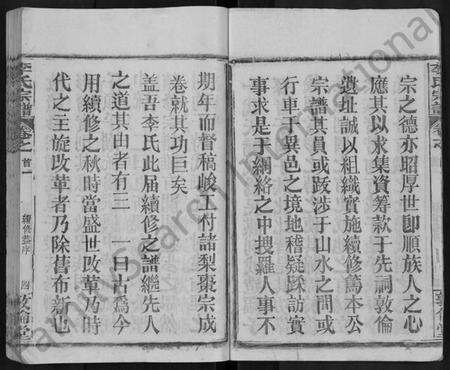 李氏宗譜
宗之德亦昭厚世即順族人之心
應其以求集資籌款于先詞敦倫
遺址誠以組織實施續修篤本公
宗譜其員或跋涉于山水之間或
行車于異邑之境地稽疑踩訪實
事求是于網絡之中搜羅人事不
期年而督稿峻工付諸梨棗宗成
卷就其功巨矣
盖吾李氏此届續修之譜繼先人
之道其由者有二 一曰古爲今
用續修之秋時當盛世改革乃時
代之主旋改革者乃除舊布新也
李氏宗譜
卷之首一
四
敦倫堂
FamilySearch International